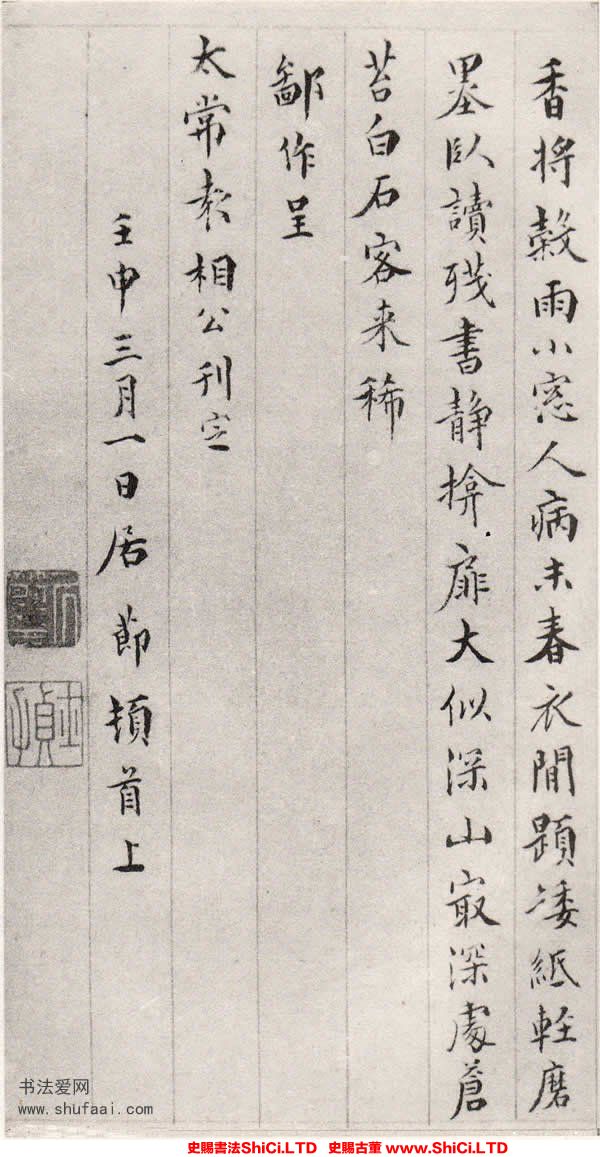 香將穀雨小窓人病未春衣閒題矮紙輕磨
墨臥讀殘書静揜扉大似深山最深處蒼
苔白石客来稀
鄙作呈
太常袁相公刊定
壬申三月一日居節頓首上
书法爱网
www.shufaai.com
史賜書法ShiCi.LTD 史賜古董 www.ShiCi.LTD